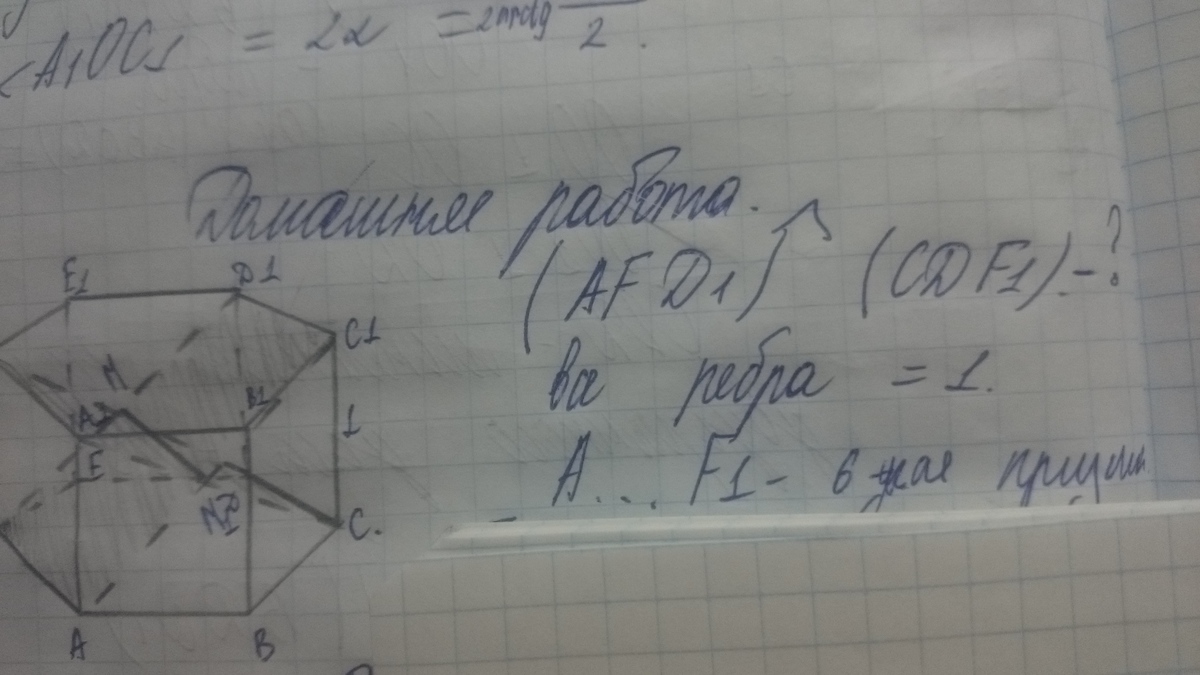 <A1OC1 = 2α = 2arctg 2.
Домашняя работа.
(AFD1)^(CDF1).-?
все ребра = 1.
A... F1 - 6
E1
D1
C1
M
B1
A1
1
E
C.
A
B